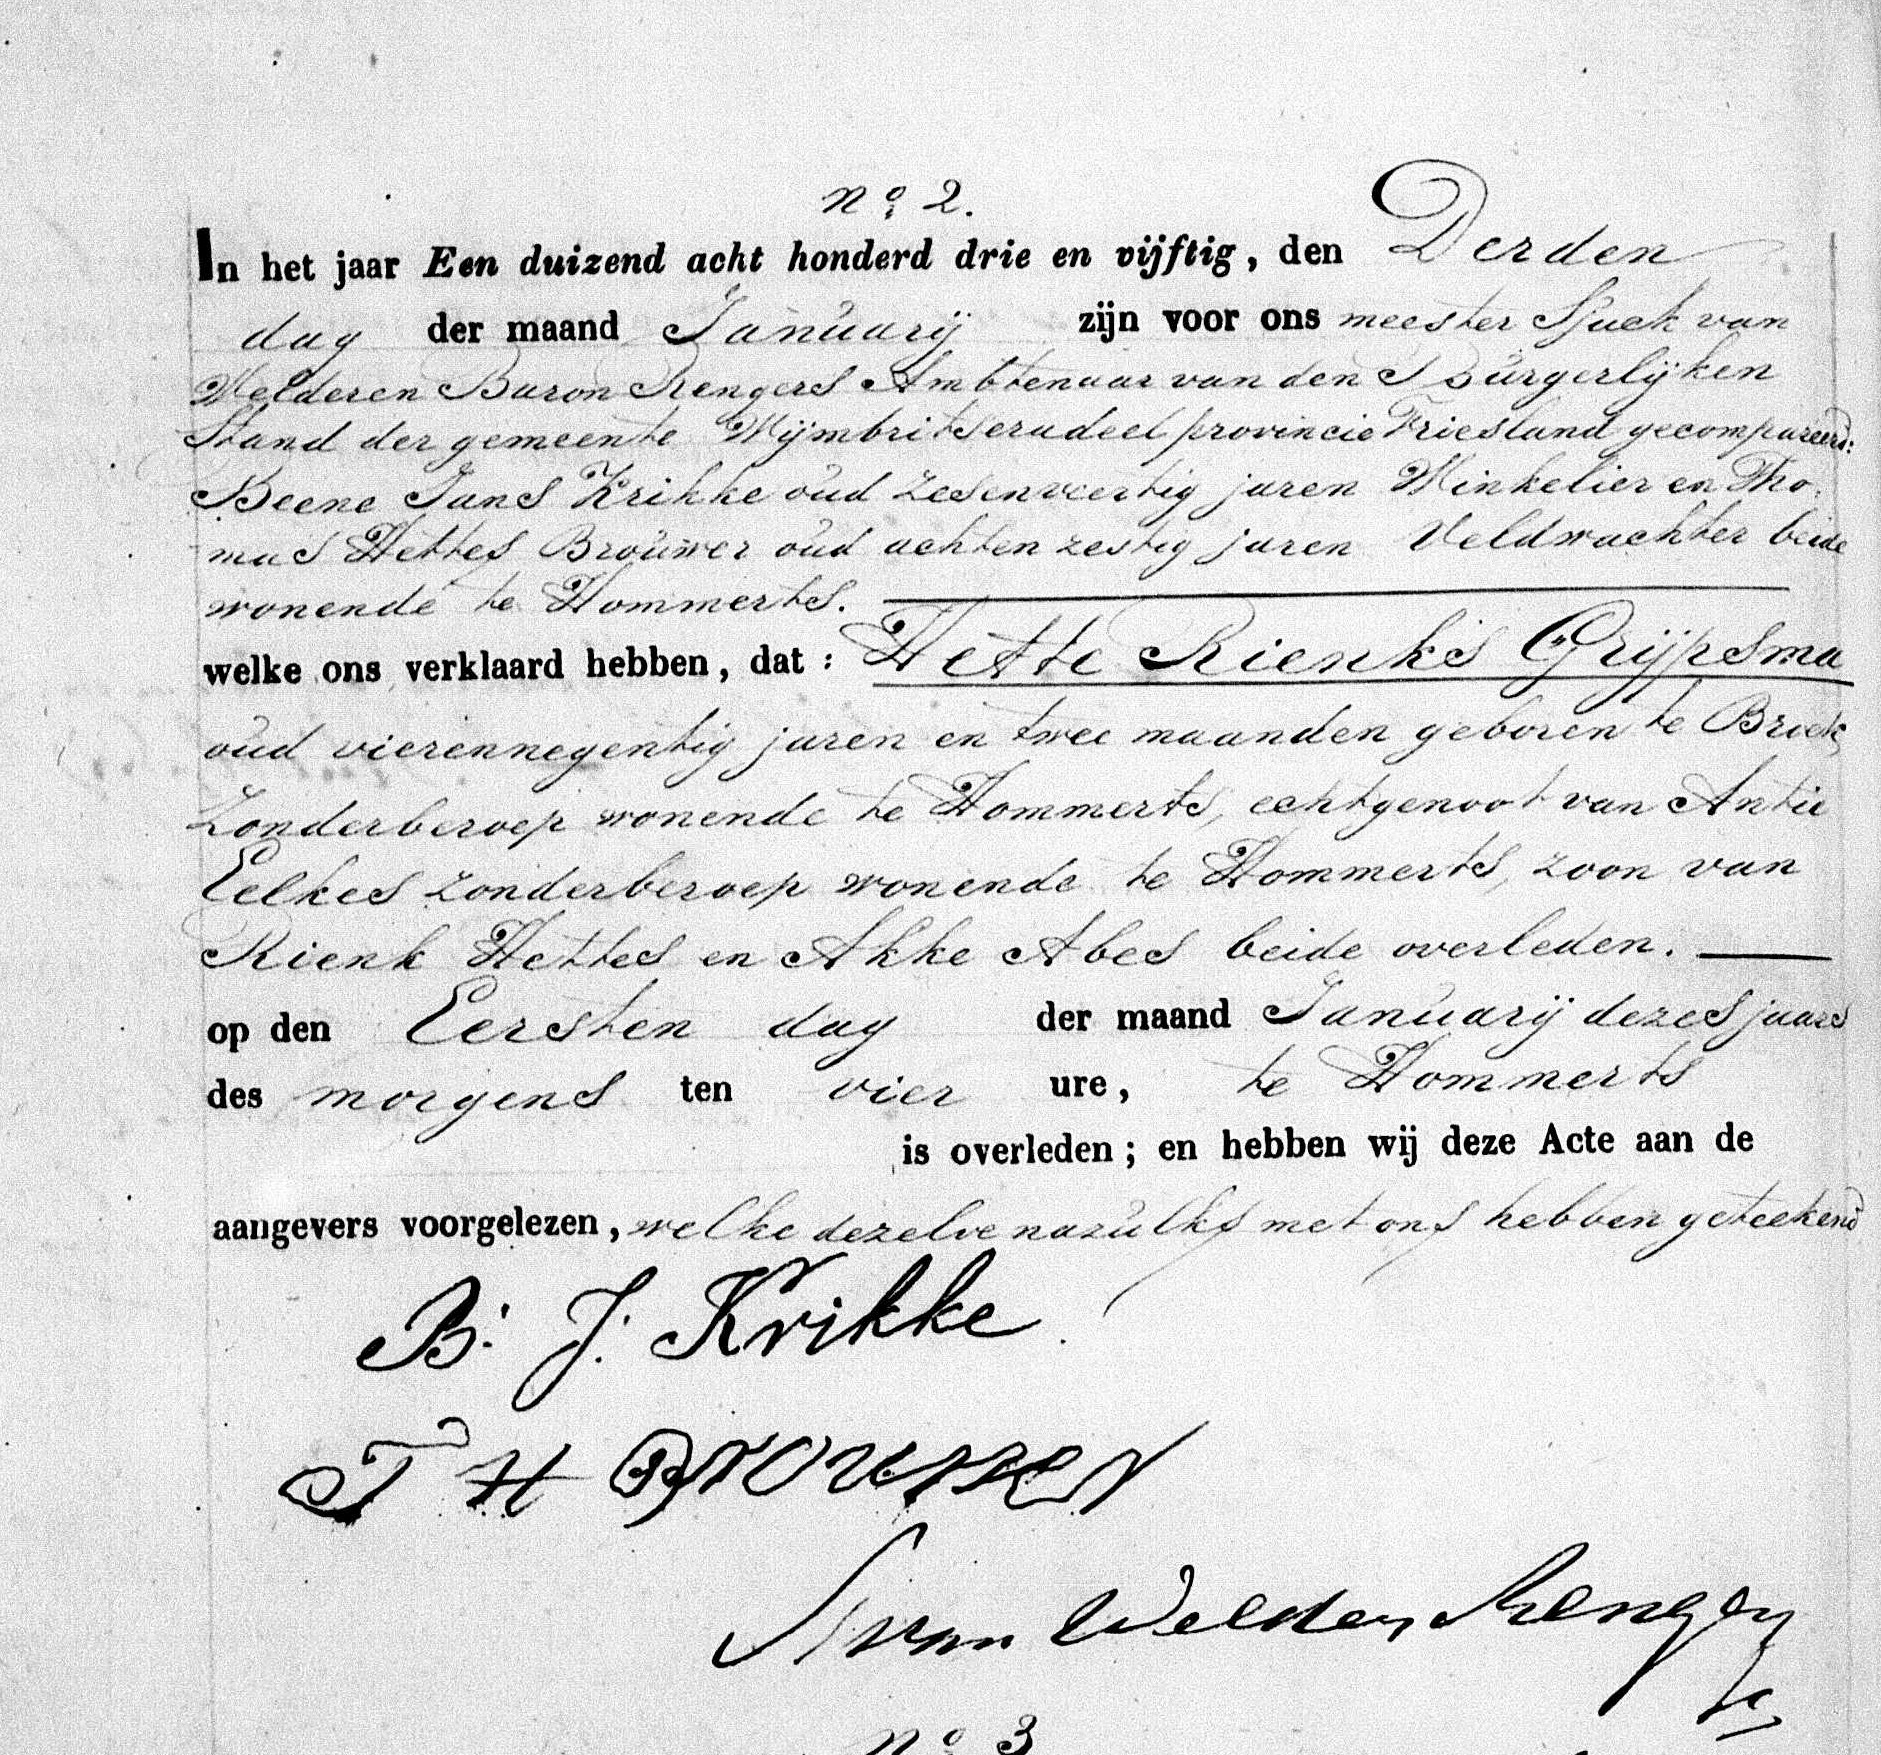 no 2.
In het jaar Een duizend acht honderd drie en vijftig, den Derden
dag der maand Januarij zijn voor ons meester Sjuck van
Welderen Baron Rengers Ambtenaar van den Burgerlijken
Stand der gemeente Wijmbritseradeel provincie Friesland gecompareerd:
Beene Jans Krikke oud zesenveertig jaren Winkelier en Tho-
mas Hettes Brouwer oud achtenzestig jaren Veldwachter beide
wonende te Hommerts.
welke ons verklaard hebben, dat: Hette Rienks Grijpsma
oud vierennegentig jaren en twee maanden geboren te Broek
Zonderberoep wonende te Hommerts, echtgenoot van Antie
Eelkes zonderberoep wonende te Hommerts, zoon van
Rienk Hettes en Akke Abes beide overleden.
op den Eersten dag der maand Januarij dezes jaars
des morgens ten vier ure, te Hommerts
is overleden; en hebben wij deze Acte aan de
aangevers voorgelezen, welke dezelve nazulks met ons hebben geteekend
B. J. Krikke
T H Brouwer
S van Welderen Rengers
no 3